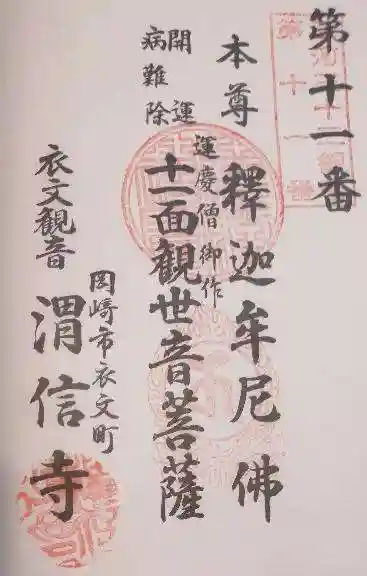 第十一番
本尊 釋迦牟尼佛
開運
病難除
運慶僧御作
十一面観世音菩薩
衣文観音
岡崎市衣文町
渭信寺
第十一番